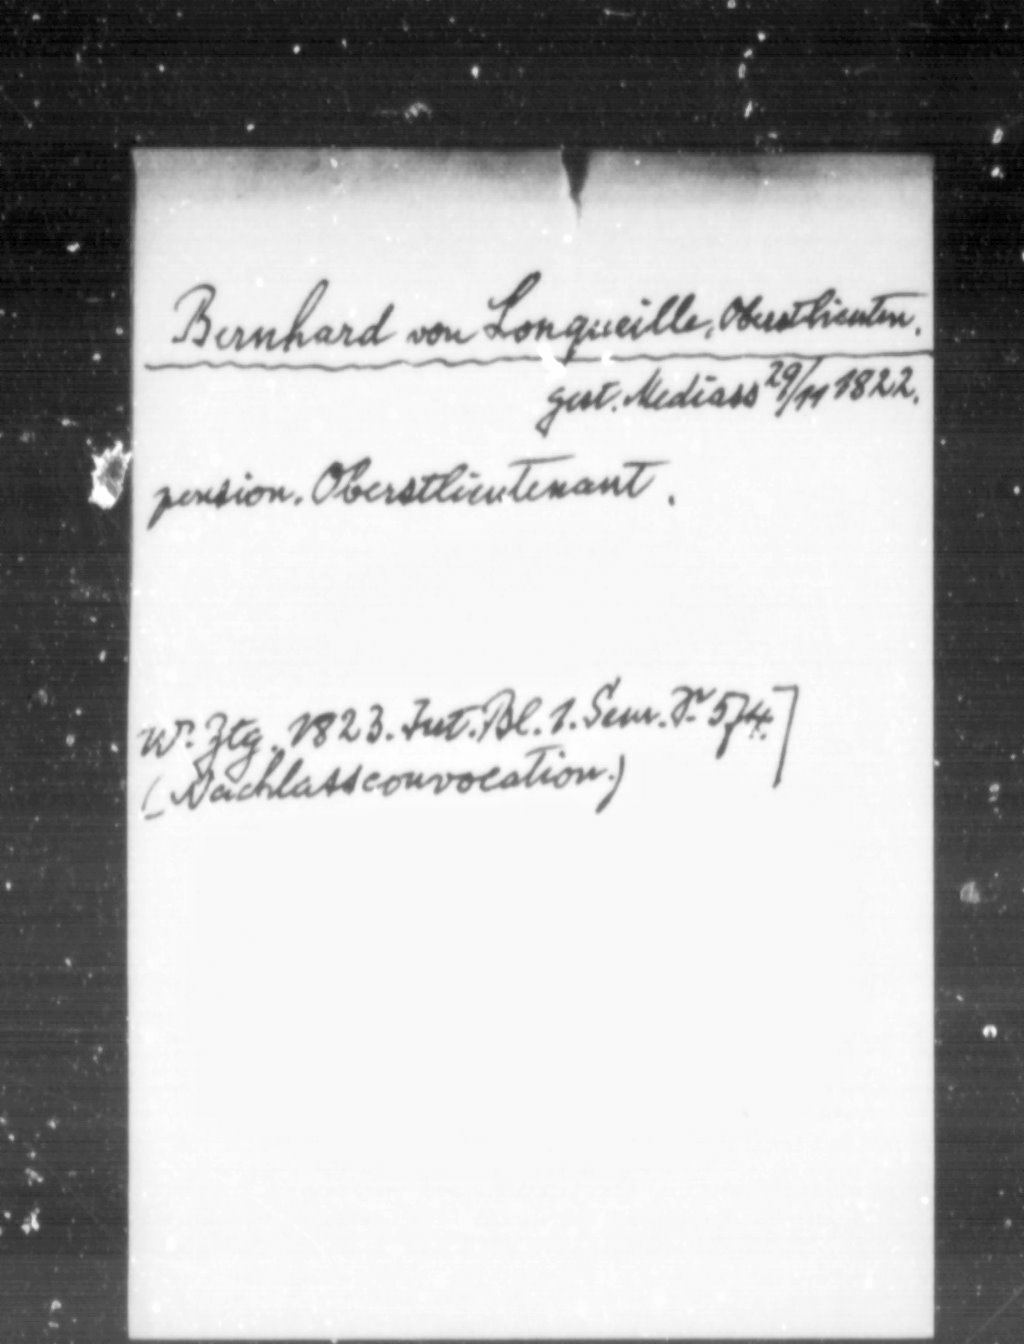 Bernhard von Longueille, Oberstlieuten.
gest. Mediass 29/11 1822.
pension. Oberstlieutenant.
Wr. Ztg. 1823. Int. Bl. 1. Sem. S. 574.]
(Nachlassconvocation.)